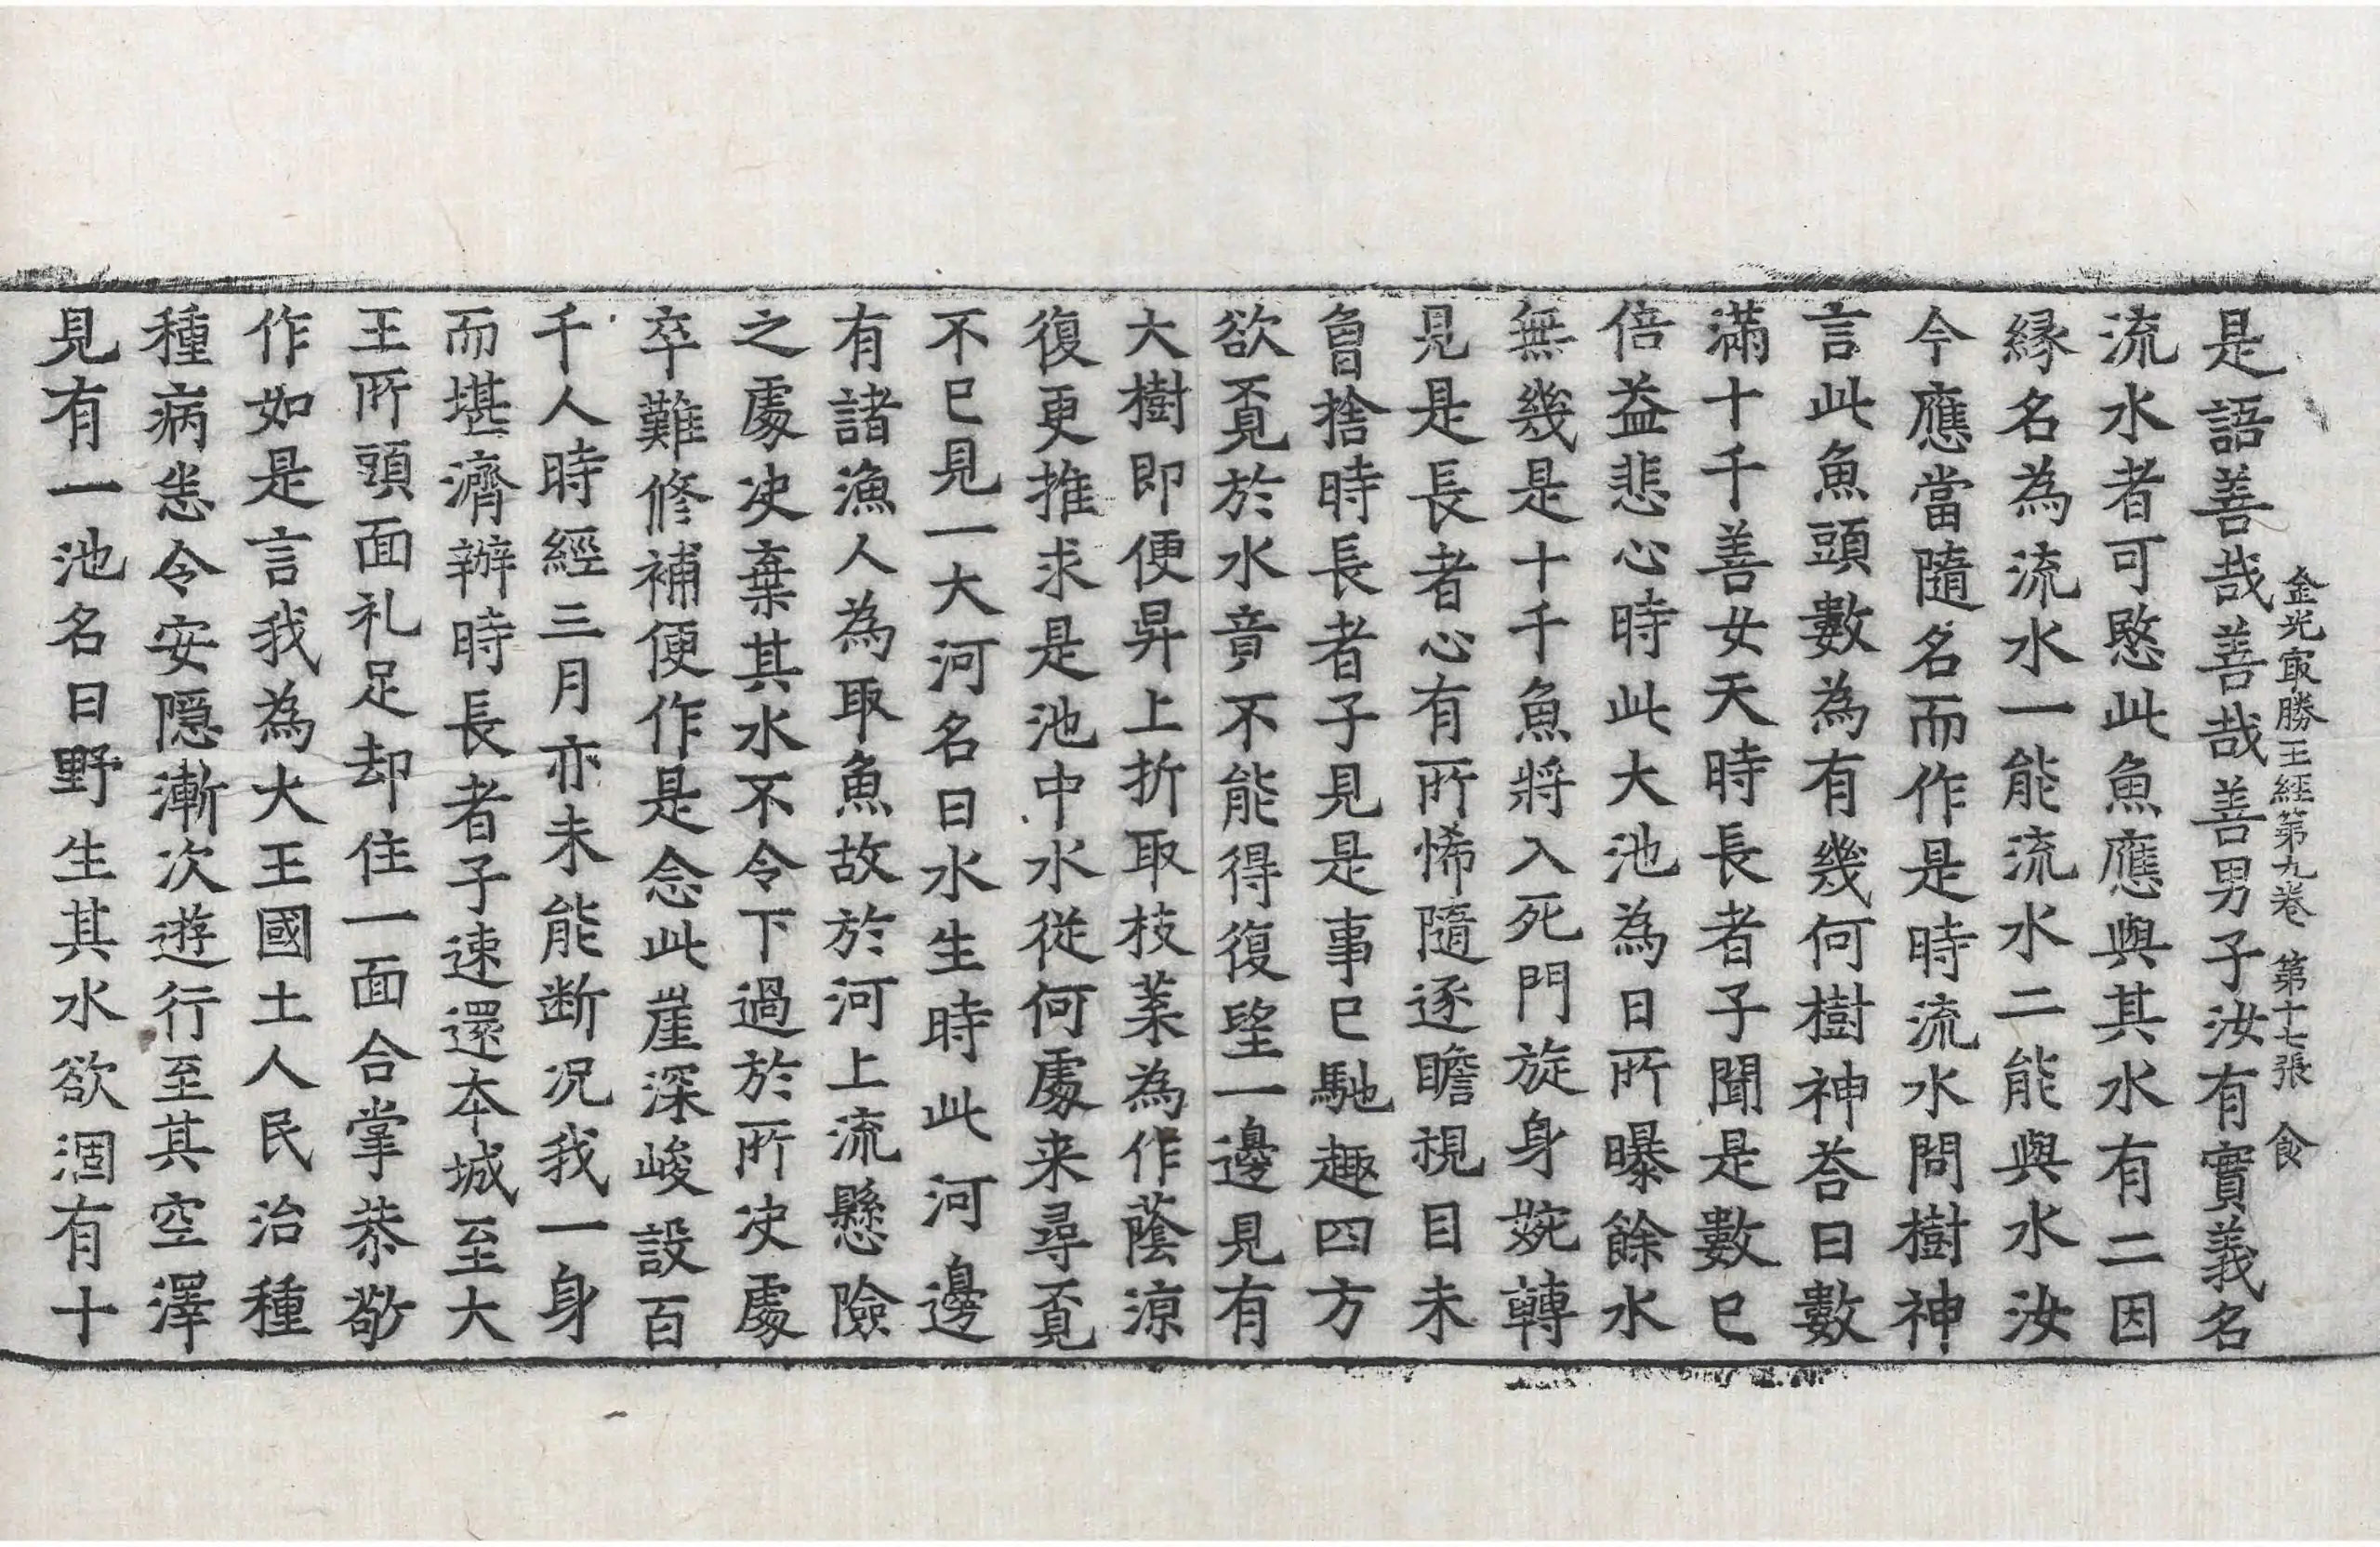 金光㝡勝王經第九卷 第十七張 食
是語善哉善哉善男子汝有實義名
流水者可愍此魚應與其水有二因
縁名為流水一能流水二能與水汝
今應當隨名而作是時流水問樹神
言此魚頭數為有幾何樹神荅曰數
滿十千善女天時長者子聞是數已
倍益悲心時此大池為日所曝餘水
無幾是十千魚將入死門旋身婉轉
見是長者心有所悕隨逐瞻視目未
曾捨時長者子見是事已馳趣四方
欲覓於水竟不能得復望一邊見有
大樹即便昇上折取枝葉為作蔭涼
復更推求是池中水從何處来尋覓
不已見一大河名曰水生時此河邊
有諸漁人為取魚故於河上流懸險
之處决棄其水不令下過於所决處
卒難修補便作是念此崖深峻設百
千人時經三月亦未能断况我一身
而堪濟辦時長者子速還本城至大
王所頭面礼足却住一面合掌恭敬
作如是言我為大王國土人民治種
種病悉令安隱漸次遊行至其空澤
見有一池名曰野生其水欲涸有十